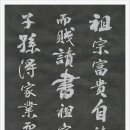 祖宗富貴自詩
而賤讀書祖宗
子孫得家業而